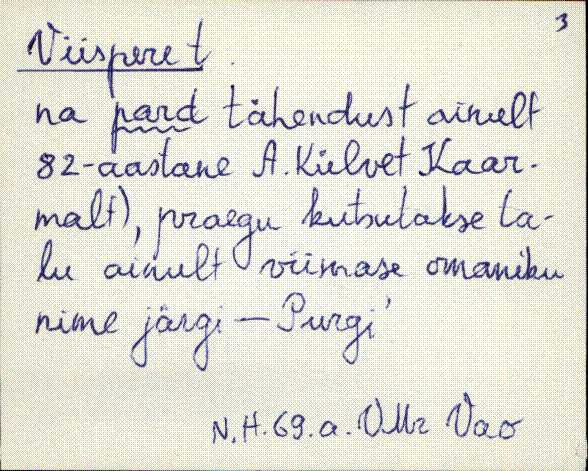 3
Viispere t.
na pard tähendust ainult
82-aastane A. Külvet Kaar-
malt), praegu kutsutakse ta-
lu ainult viimase omaniku
nime järgi – Purgi'
N.H. 69.a. VMr Vao